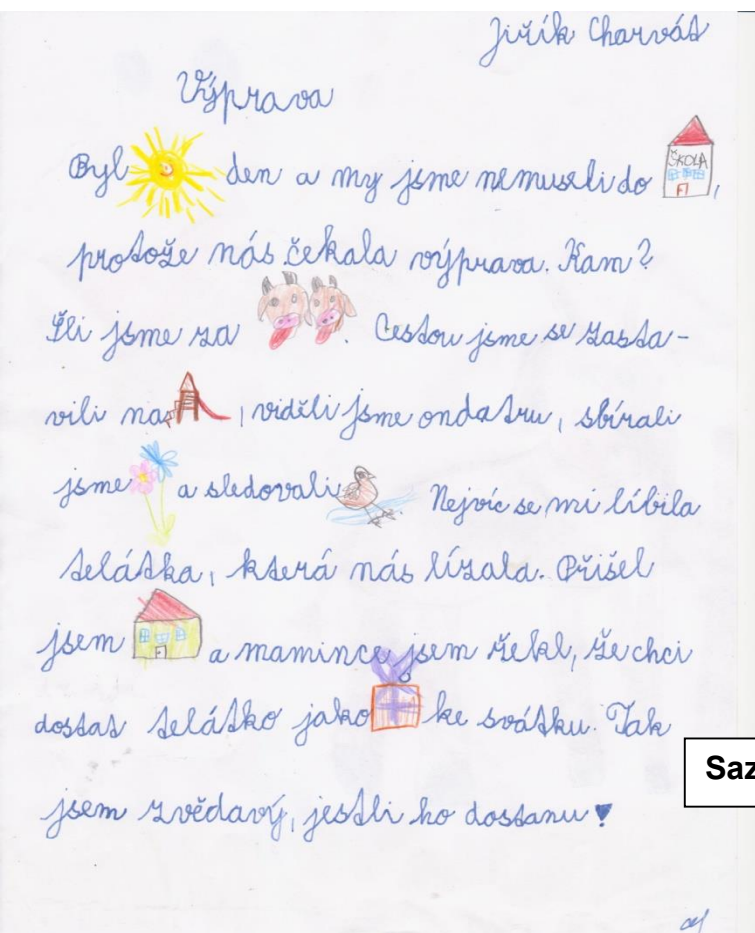 Jiřík Charvát
Výprava
Byl den a my jsme nemuseli do ŠKOLA,
protože nás čekala výprava. Kam?
Šli jsme za . Cestou jsme se zasta-
vili na , viděli jsme ondatru, sbírali
jsme a sledovali Nejvíc se mi líbila
telátka, která nás lízala. Přišel
jsem a mamince jsem řekl, že chci
dostat telátko jako ke svátku. Tak
Saz
jsem zvědavý, jestli ho dostanu!